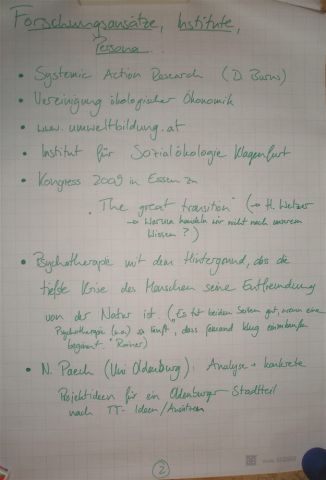 Forschungsansätze, Institute,
Persona
• Systemic Action Research (D. Burns)
• Vereinigung ökologischer Ökonomik
• www.umweltbildung.at
• Institut für Sozialökologie Klagenfurt
• Kongress 2009 in Essen zu
• "The great transition" (→ H. Welzer
→ Warum handeln wir nicht nach unserem
Wissen?)
• Psychotherapie mit dem Hintergrund, dass die
tiefste Krise des Menschen seine Entfremdung
von der Natur ist. („Es tut beiden Seiten gut, wenn eine
Psychotherapie (u.a.) so läuft, dass jemand klug
beginnt." Rainer)
• N. Paech (Uni Oldenburg): Analyse + konkrete
Projektideen für ein Oldenburger Stadtteil
nach TT- Ideen/Ansätzen
2